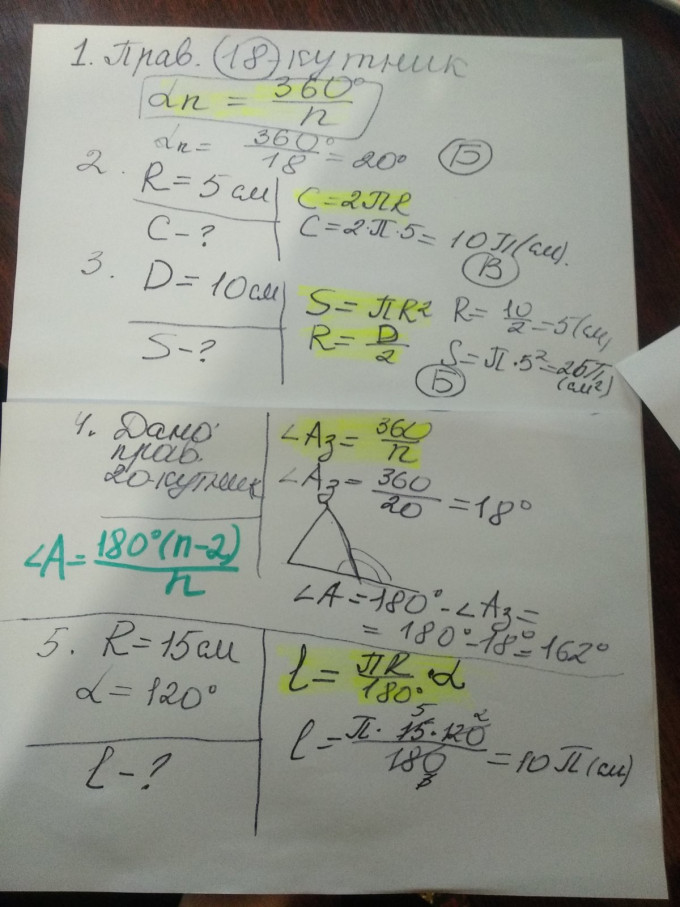 1. Прав. 18-кутник
αn = 360° / n
αn = 360° / 18 = 20° Б
2. R = 5 см C = 2ПR
C - ? C = 2·П·5 = 10П (см). В
3. D = 10 см S = ПR² R = 10/2 = 5 (см)
S - ? R = D/2 S = П·5² = 25П (см²)
Б
4. Дано:
прав.
20-кутник
∠A = 180°(n-2) / n
∠Aз = 360 / n
∠Aз = 360 / 20 = 18°
∠A = 180° - ∠Aз =
= 180° - 18° = 162°
5. R = 15 см
α = 120°
l - ?
l = ПR / 180° · α
l = П · 15 · 120 / 180 = 10 П (см)
5 2
3